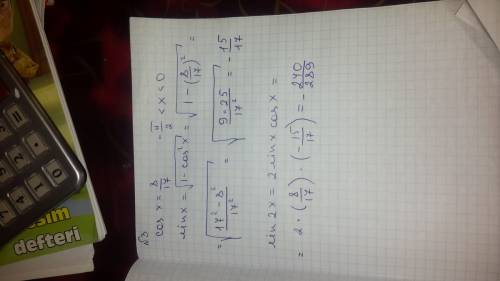 №3
cos x = 8/17   -π/2 < x < 0
sin x = √(1 - cos²x) = √(1 - (8/17)²) =
= √((17² - 8²)/17²) = √((9·25)/17²) = -15/17
sin 2x = 2 sin x cos x =
= 2 · (8/17) · (-15/17) = -240/289
esim
defteri